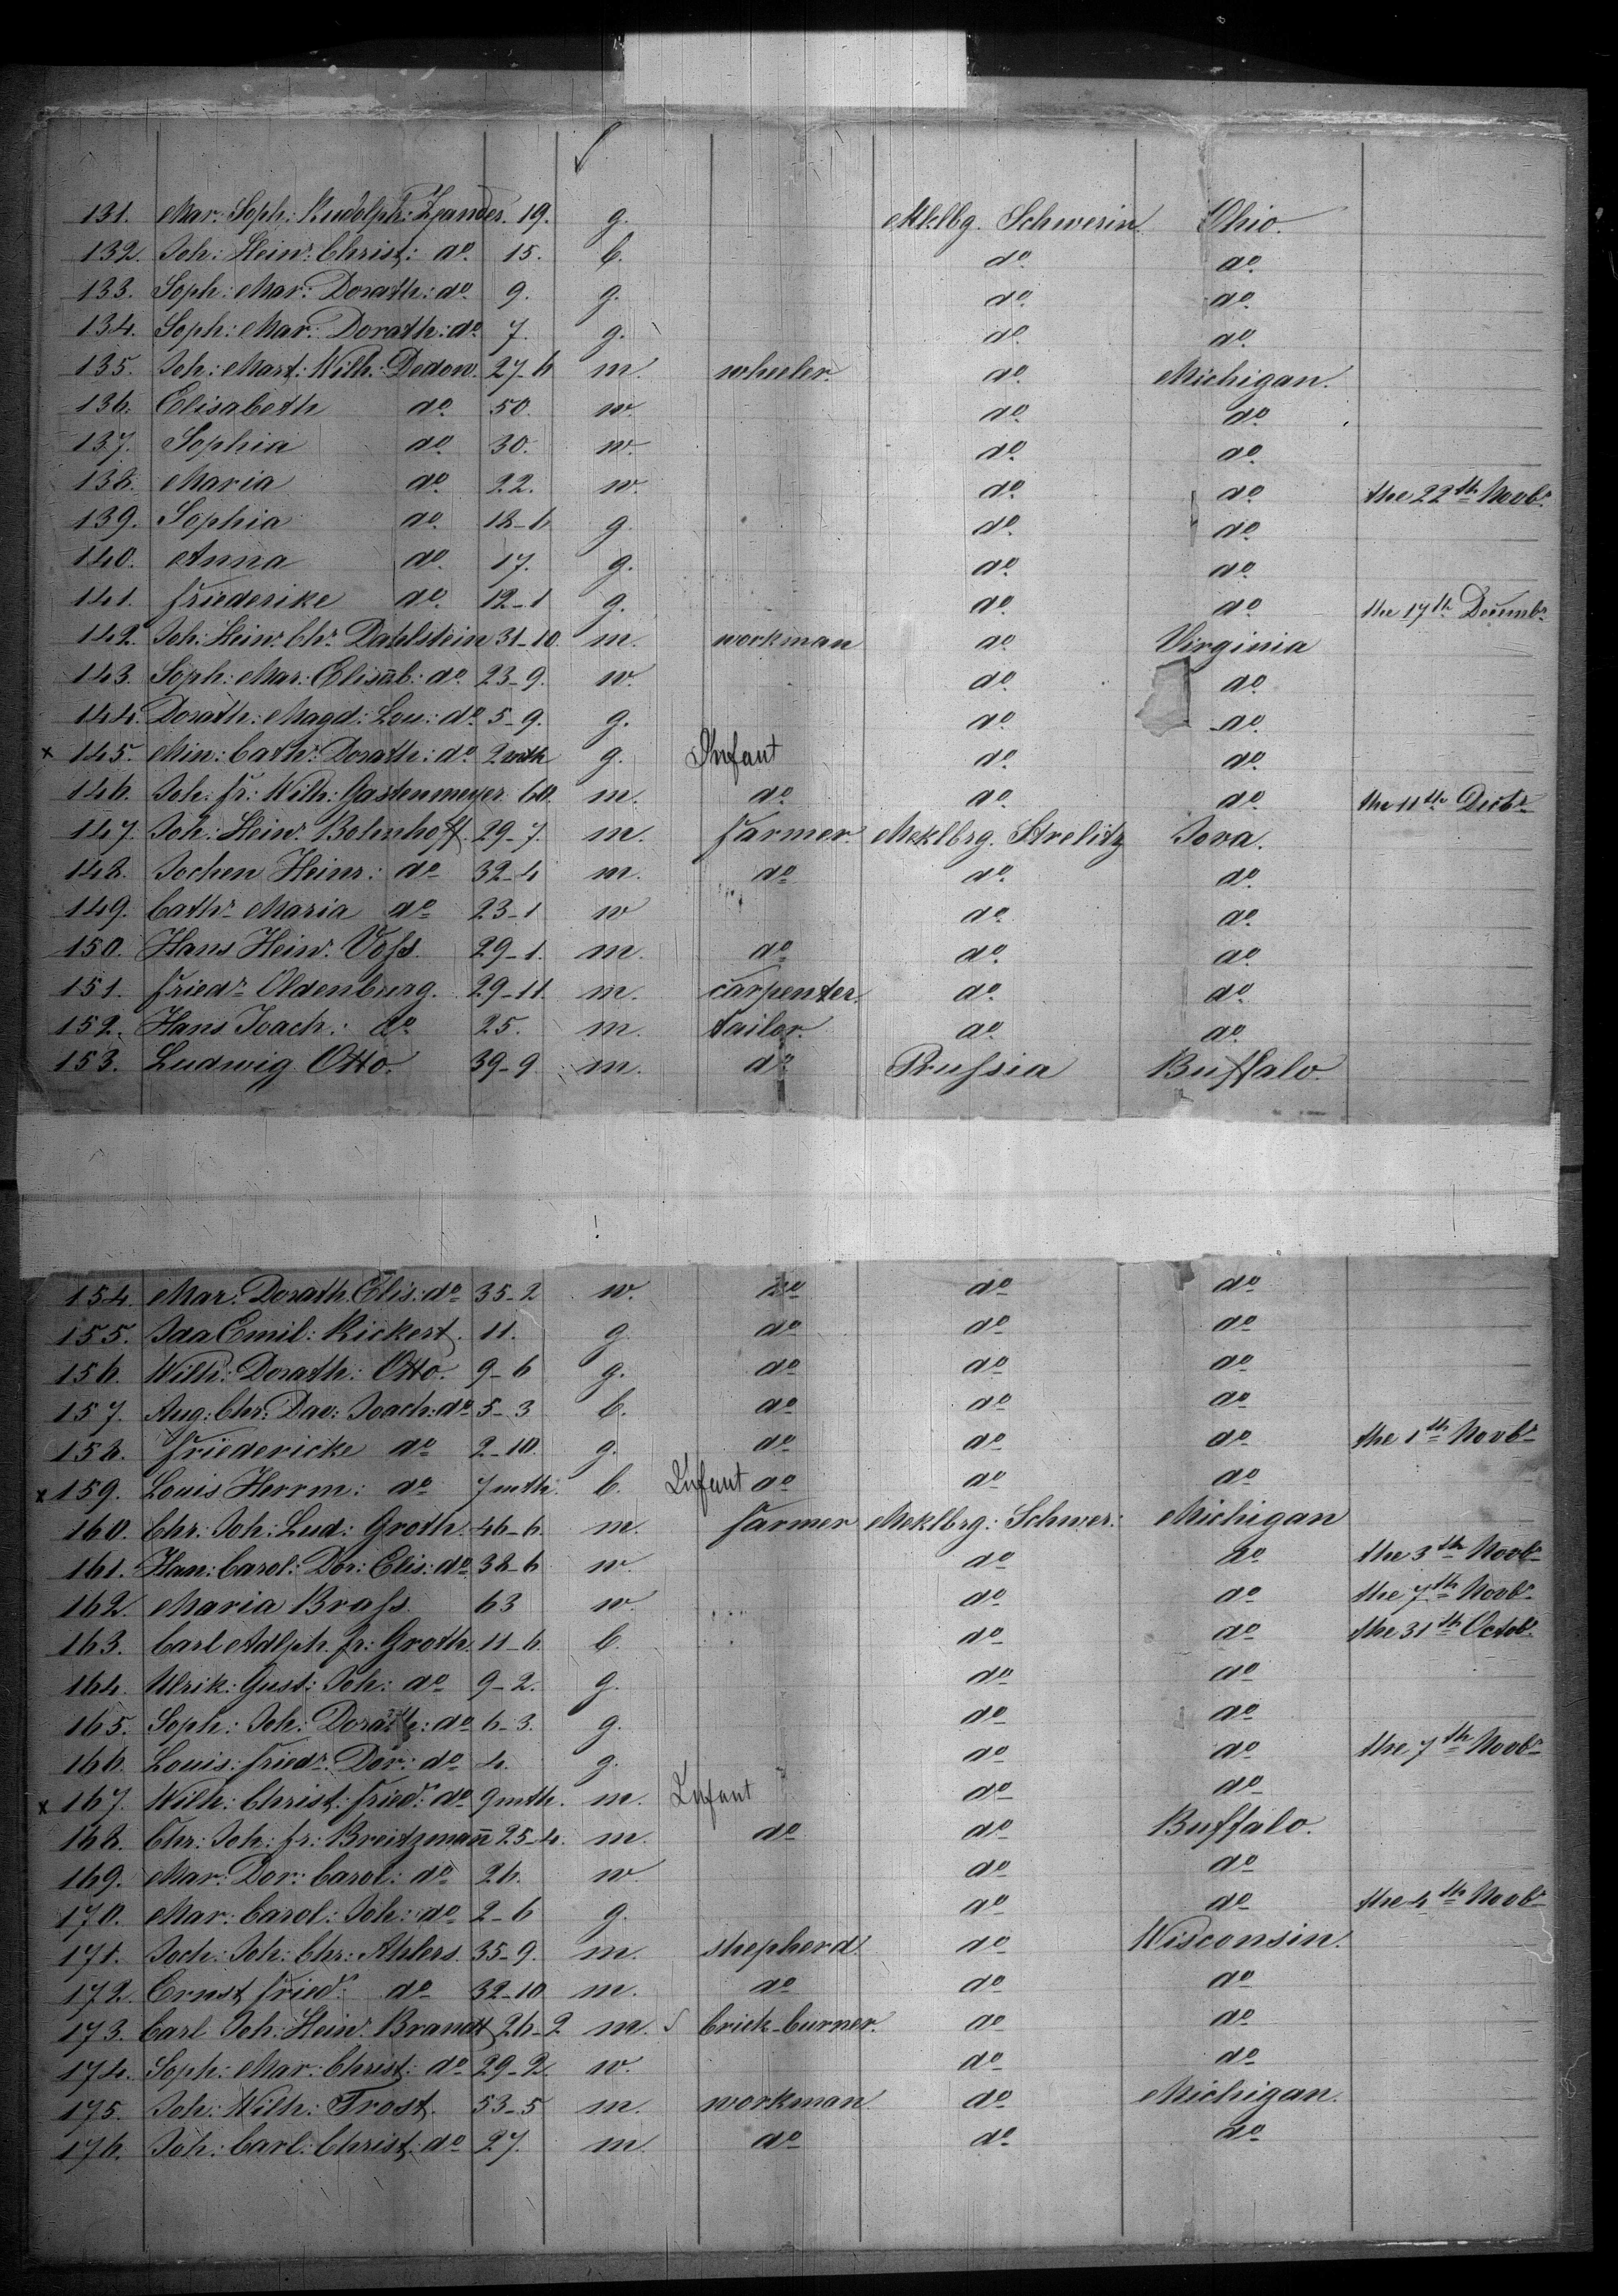 131. Mar: Soph: Rudolph: Zander. 19. g. Mklbg. Schwerin Ohio.
132. Joh: Heinr. Christ: do. 15. b. do. do.
133. Soph: Mar: Dorath: do. 9. g. do. do.
134. Soph: Mar: Dorath: do. 7. g. do. do.
135. Joh: Mart: Wilh: Dedow. 27-6 m. wheeler. do. Michigan.
136. Elisabeth do. 50. w. do. do
137. Sophia do. 30. w. do. do.
138. Maria do. 22. w. do. do the 22th Novbr.
139. Sophia do. 18-6 g. do. do.
140. Anna do. 17. g. do. do.
141. Friederike do. 12-1 g. do. do the 17th Decembr.
142. Joh: Heinr. Chr. Dahlstein 31-10. m. workman do. Virginia
143. Soph: Mar: Elisab: do. 23-9. w. do. do.
144. Dorath: Magd: Lou: do. 5-9. g. do. do.
x 145. Min: Cathr. Dorath: do. 2 mth g. Infant do. do.
146. Joh: Fr: Wilh: Gastenmeyer 60. m. do. do. do. the 11th Decbr.
147. Joh: Heinr. Bolenhoff. 29-7. m. farmer. Meklbrg. Strelitz Iova.
148. Jochen Heinr: do 32-4 m. do do. do.
149. Cathr. Maria do 23-1 w do. do.
150. Hans Heinr. Voss. 29-1. m. do. do. do.
151. Friedr. Oldenburg. 29-11. m. carpenter. do. do.
152. Hans Joach: do. 25. m. tailor. do. do.
153. Ludwig Otto. 39-9. m. do. Prussia Buffalo.
154. Mar: Dorath. Elis: do 35-2 w. do do do
155. Ida Emil: Rickert. 11. g. do do do
156. Wilh: Dorath: Otto. 9-6 g. do do do
157. Aug: Chr: Dav: Joach: do 5-3 b. do do do
158. Friedericke do 2-10. g. do do do the 1th Novbr
x 159. Louis Herrm: do 7 mth. b. Infant do do do
160. Chr: Joh: Lud: Groth. 46-6. m. farmer Meklbrg: Schwer: Michigan
161. Han: Carol: Dor: Elis: do. 38-6 w. do do the 3th Novbr
162. Maria Brass. 63 w. do do the 7th Novbr
163. Carl Adlph. Fr: Groth. 11-6. b. do do the 31th Octob.
164. Ulrik: Gust: Joh: do 9-2. g. do do
165. Soph: Joh: Dorath: do 6-3. g. do do
166. Louis: Friedr. Dor: do 4. g. do do the 7th Novbr
x 167. Wilh: Christ: Fried. do 9 mth. m. Infant do do
168. Chr: Joh: Fr: Breitzmann 25-4. m. do do Buffalo.
169. Mar: Dor: Carol: do 26. w. do do
170. Mar: Carol: Joh: do 2-6 g. do do the 4th Novbr
171. Joch: Joh: Chr: Ahlers. 35-9. m. shepherd. do Wisconsin.
172. Ernst Fried. do 32-10 m. do do do
173. Carl Joh: Heinr. Brandt 26-2 m. brick-burner. do do
174. Soph: Mar: Christ: do 29-2. w. do do
175. Joh: Wilh: Trost. 53-5 m. workman. do Michigan.
176. Joh: Carl: Christ: do 27. m. do do do